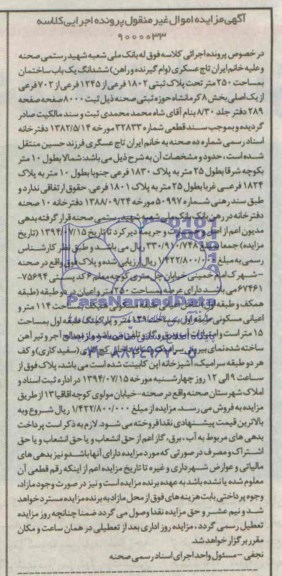 آگهی مزایده اموال غیر منقول پرونده اجرایی کلاسه
۹۰۰۰۰۳۳
در خصوص پرونده اجرائی کلاسه فوق له بانک ملی شعبه شهید رستمی صحنه
و علیه خانم ایران تاج عسکری (وام گیرنده و راهن) ششدانگ یک باب ساختمان
بمساحت ۲۵۰ متر تحت پلاک ثبتی ۱۸۰۲ فرعی از ۱۲۴۵ فرعی از ۷۰۲ فرعی
از یک اصلی بخش ۸ کرمانشاه حوزه ثبتی صحنه ذیل ثبت ۸۰۰۰ صفحه صفحه
۲۸۹ دفتر جلد ۸/۳۰ بنام آقای شاه محمد محمدی ثبت و سند مالکیت صادر
گردیده و بموجب سند قطعی شماره ۳۲۸۳۳ مورخه ۱۳۸۲/۵/۱۴ دفترخانه
اسناد رسمی شماره ده صحنه به خانم ایران تاج عسکری فرزند حسین منتقل
شده است، حدود و مشخصات آن به شرح ذیل می باشد: شمالا بطول ۱۰ متر
بکوچه شرقا بطول ۲۵ متر به پلاک ۱۸۳۰ فرعی جنوبا بطول ۱۰ متر به پلاک
۱۸۲۴ فرعی، غربا بطول ۲۵ متر به پلاک ۱۸۰۱ فرعی. حقوق ارتفاقی ندارد و
طبق سند رهنی شماره ۵۰۹۹۷ مورخه ۱۳۸۸/۰۹/۲۴ دفترخانه ۱۰ صحنه
دفترخانه در رهن بانک ملی شعبه شهید رستمی صحنه قرار گرفته بدهی
مدیون اعم از اصل و خسارت و جریمه دیرکرد تا تاریخ ۱۳۹۴/۰۷/۱۵ (تاریخ
مزایده) جمعا مبلغ ۲۳۰/۹۱۰/۷۴۸ ریال می باشد و طبق نظر کارشناس
رسمی به مبلغ ۱/۴۲۲/۸۰۰/۰۰۰ ریال ارزیابی شده و پلاک فوق واقع در صحنه
– شهرک امام حسین خیابان
همکف و طبقه اول
اعیانی مسکونی طبقه اول بمساحت ۱۳۹ متر و پارکینگ طبقه اول بمساحت
۱۵ متر است
ساخته شده نمای بیرونی
هر دو طبقه سرامیک، آشپزخانه اپن کابینت شده است می باشد، پلاک فوق از
ساعت ۹ الی ۱۲ روز چهارشنبه مورخه ۱۳۹۴/۰۷/۱۵ در اداره ثبت اسناد و
املاک شهرستان صحنه واقع در صحنه – خیابان مولوی کوچه اقاقیا ۱۳ از طریق
مزایده به فروش می رسد. مزایده از مبلغ ۱/۴۲۲/۸۰۰/۰۰۰ ریال شروع و به
بالاترین قیمت پیشنهادی نقدا فروخته می شود. لازم به ذکر است پرداخت
بدهی های مربوط به آب، برق، گاز اعم از حق انشعاب و یا حق انشعاب و یا حق
اشتراک و مصرف در صورتی که مورد مزایده دارای آنها باشد و نیز بدهی های
مالیاتی و عوارض شهرداری و غیره تا تاریخ مزایده اعم از اینکه رقم قطعی آن
معلوم شده یا نشده باشد به عهده برنده مزایده است و نیز در صورت وجود مازاد،
وجوه پرداختی بابت هزینه های فوق از محل مازاد به برنده مزایده مسترد خواهد
شد و نیم عشر و حق مزایده نقدا وصول می گردد ضمنا چنانچه روز مزایده
تعطیل رسمی گردد، مزایده روز اداری بعد از تعطیلی در همان ساعت و مکان
مقرر برگزار خواهد شد.
نجفی – مسئول واحد اجرای اسناد رسمی صحنه
ParsNamadData